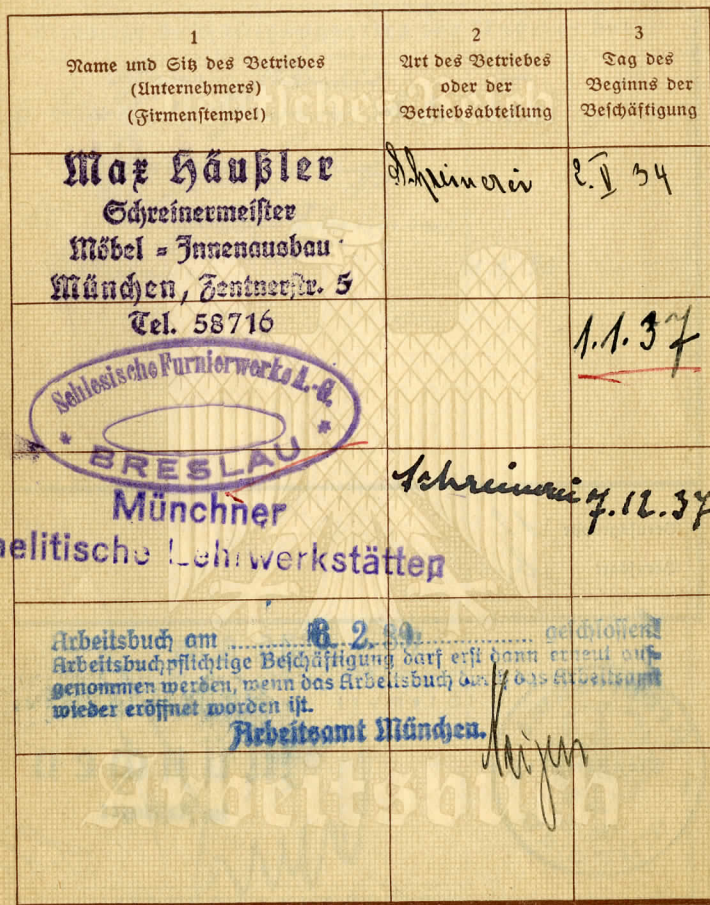 1
Name und Sitz des Betriebes
(Unternehmers)
(Firmenstempel)
2
Art des Betriebes
oder der
Betriebsabteilung
3
Tag des
Beginns der
Beschäftigung
Max Häußler
Schreinermeister
Möbel = Innenausbau
München, Zentnerstr. 5
Tel. 58716
Schreinerei
2. V 34
Schlesische Furnierwerke A.-G.
* BRESLAU *
1.1.37
Münchner
elitische Lehrwerkstätten
Schreinerei
7.12.37
Arbeitsbuch am 6. 2. 39. geschlossen!
Arbeitsbuchpflichtige Beschäftigung darf erst dann erneut auf-
genommen werden, wenn das Arbeitsbuch durch das Arbeitsamt
wieder eröffnet worden ist.
Arbeitsamt München.
Arbeitsbuch